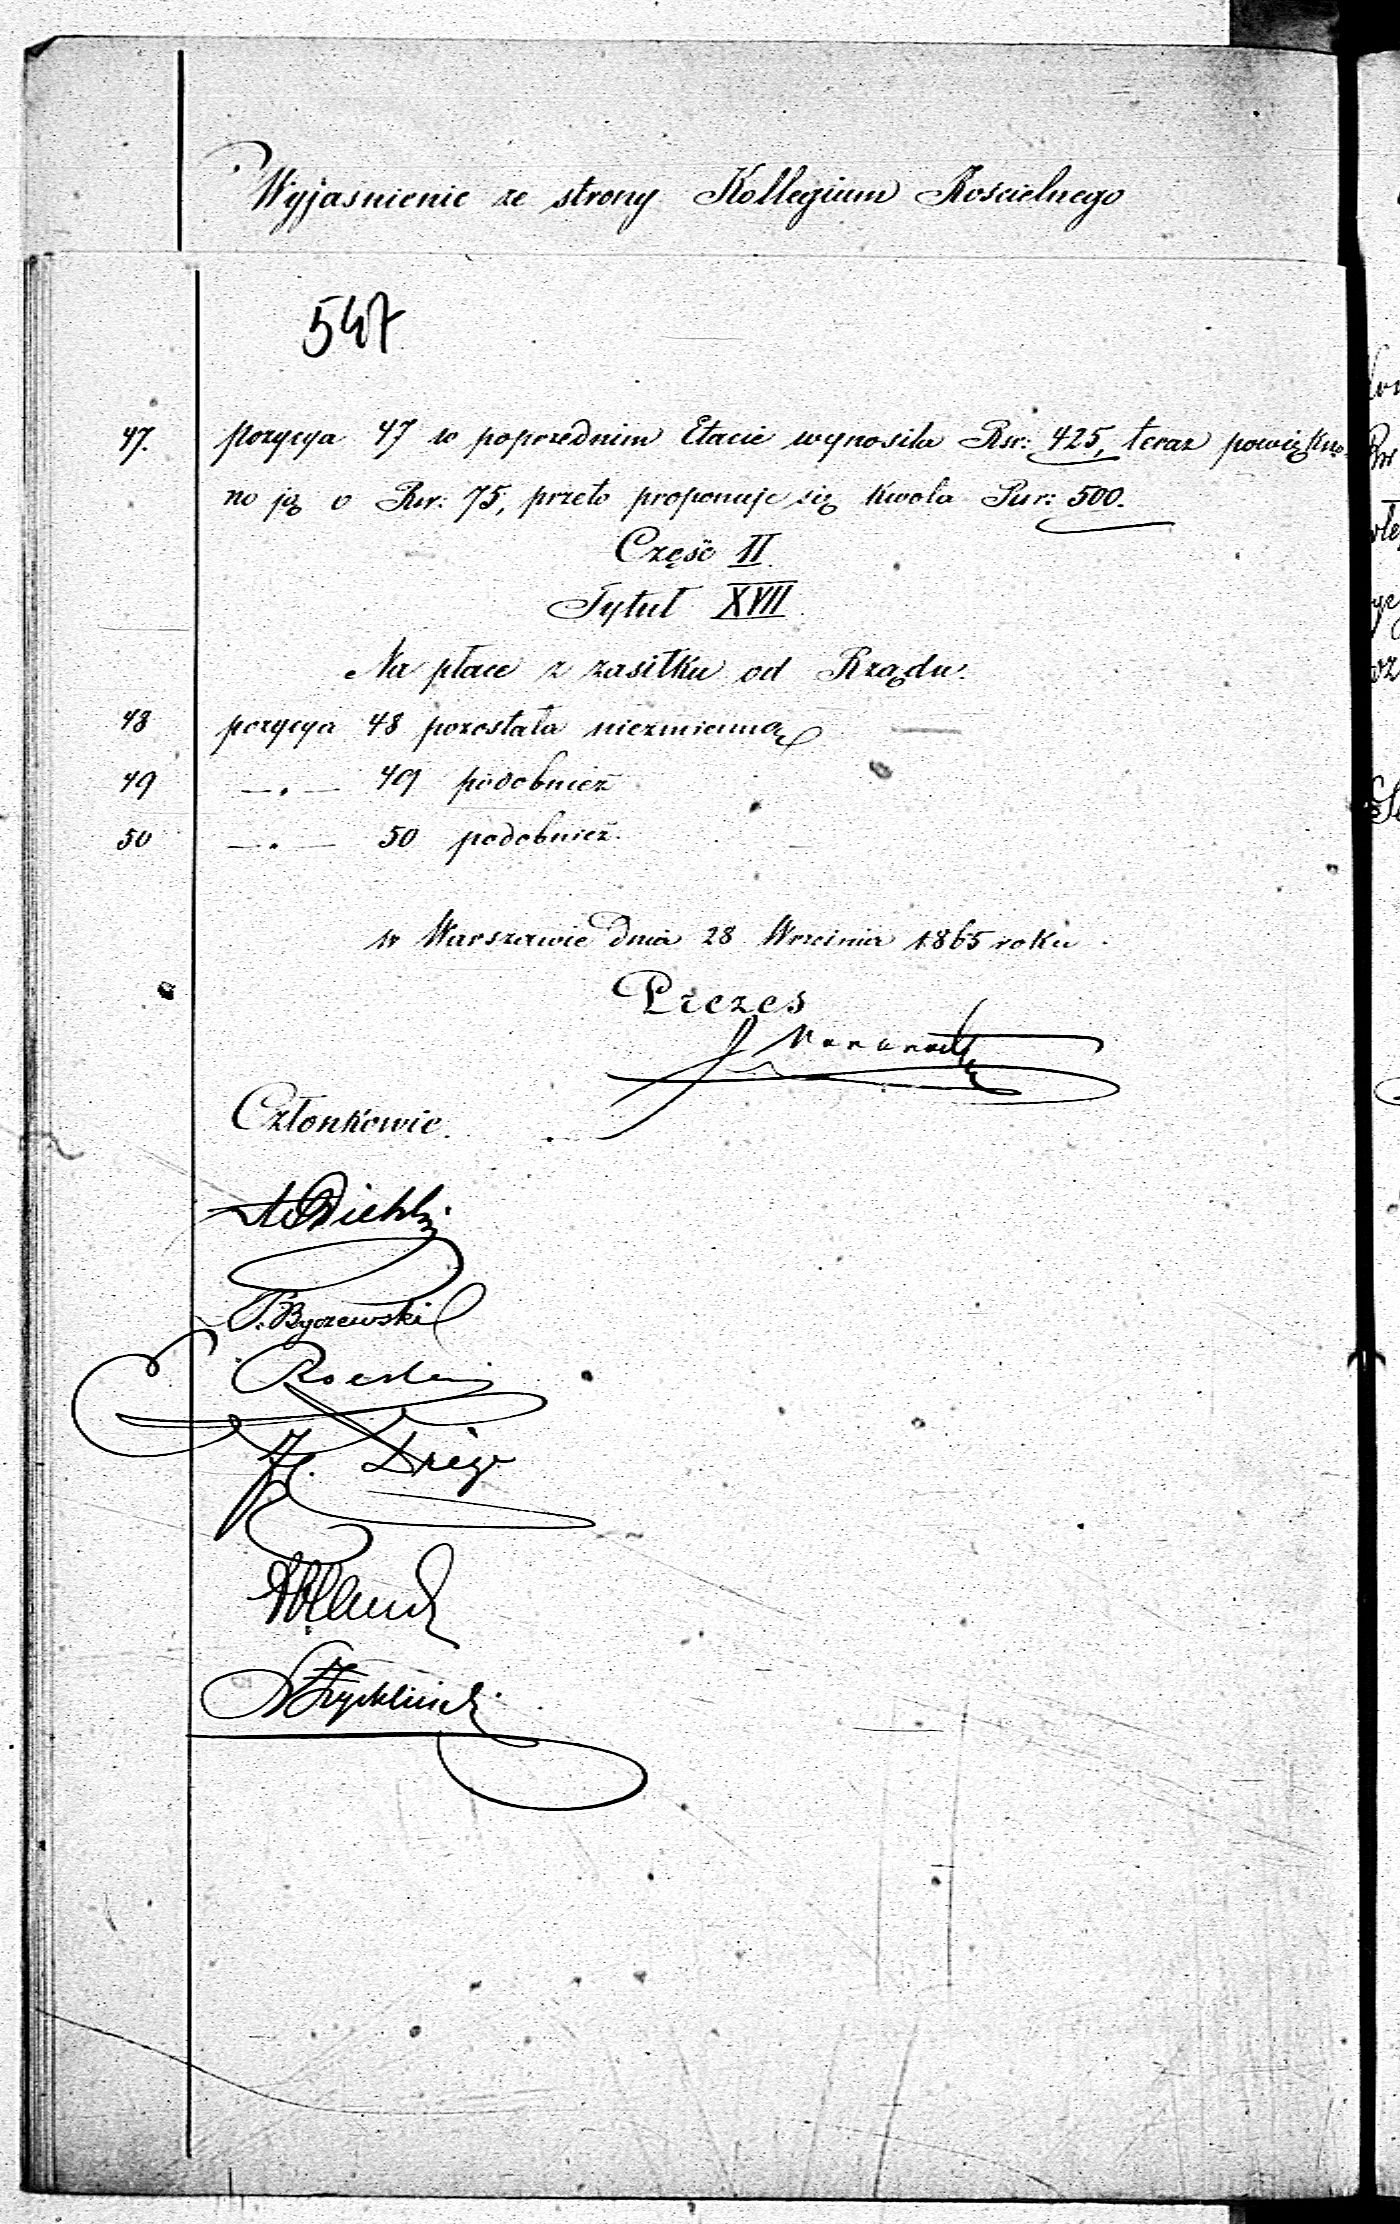 Wyjasnienie ze strony Kollegium Kościelnego
547
47. pozycya 47 w poprzednim Etacie wynosiła Rsr: 425, teraz powiększo-
no ją o Rsr: 75, przeto proponuje się kwota Rsr: 500.
Część II
Tytuł XVII
Na płace z zasiłku od Rządu.
48 pozycya 48 pozostała niezmienną
49 —„— 49 podobnież
50 —„— 50 podobnież.
w Warszawie dnia 28 Września 1865 roku
Prezes
Członkowie.
Diehl
Byczewski